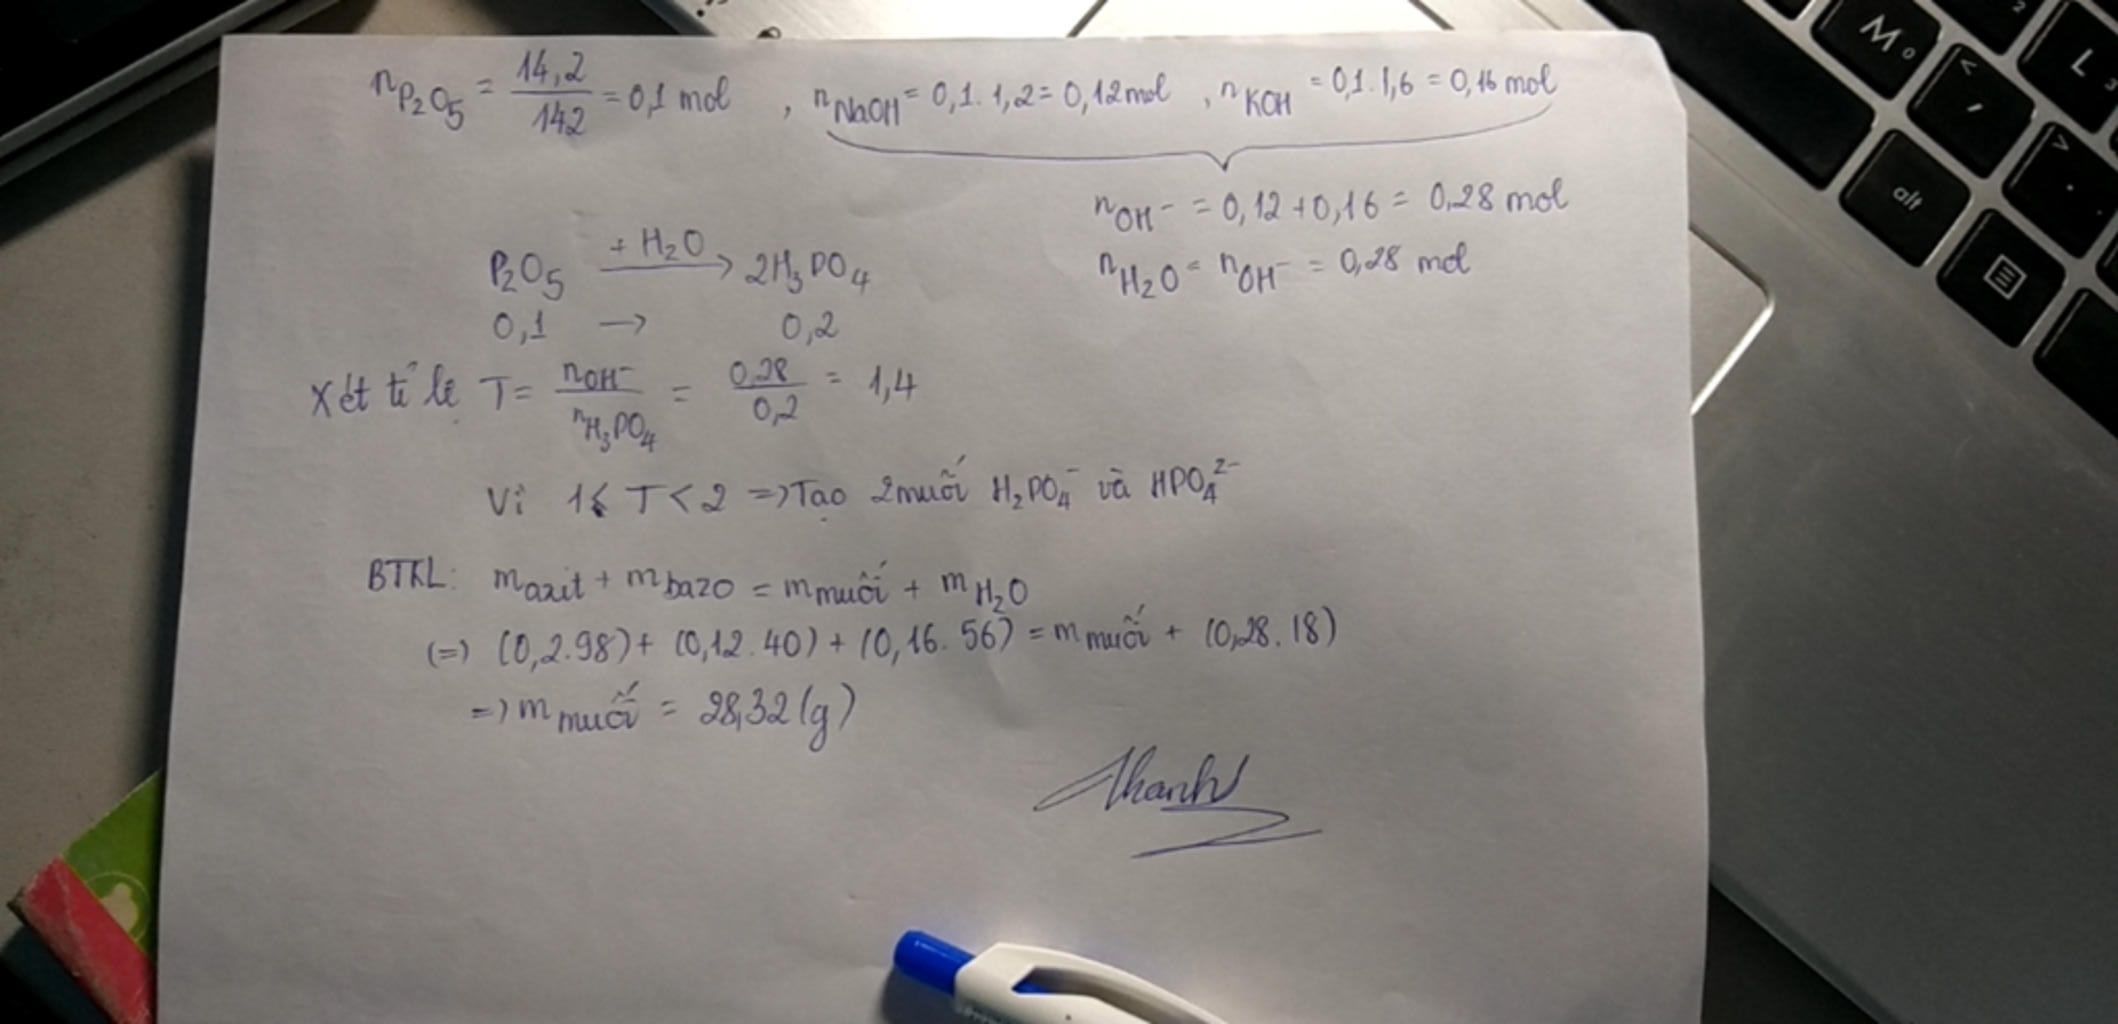 nP₂O₅ = 14,2/142 = 0,1 mol , nNaOH = 0,1. 1,2 = 0,12 mol , nKOH = 0,1. 1,6 = 0,16 mol
nOH⁻ = 0,12 + 0,16 = 0,28 mol
nH₂O = nOH⁻ = 0,28 mol
P₂O₅ + H₂O → 2H₃PO₄
0,1 → 0,2
Xét tỉ lệ T = nOH⁻/nH₃PO₄ = 0,28/0,2 = 1,4
Vì 1 < T < 2 => Tạo 2 muối H₂PO₄⁻ và HPO₄²⁻
BTKL: m axit + m bazo = m muối + m H₂O
(=) (0,2.98) + (0,12.40) + (0,16.56) = m muối + (0,28.18)
=) m muối = 28,32 (g)
Thanh
M
L
alt
<
,
>
.